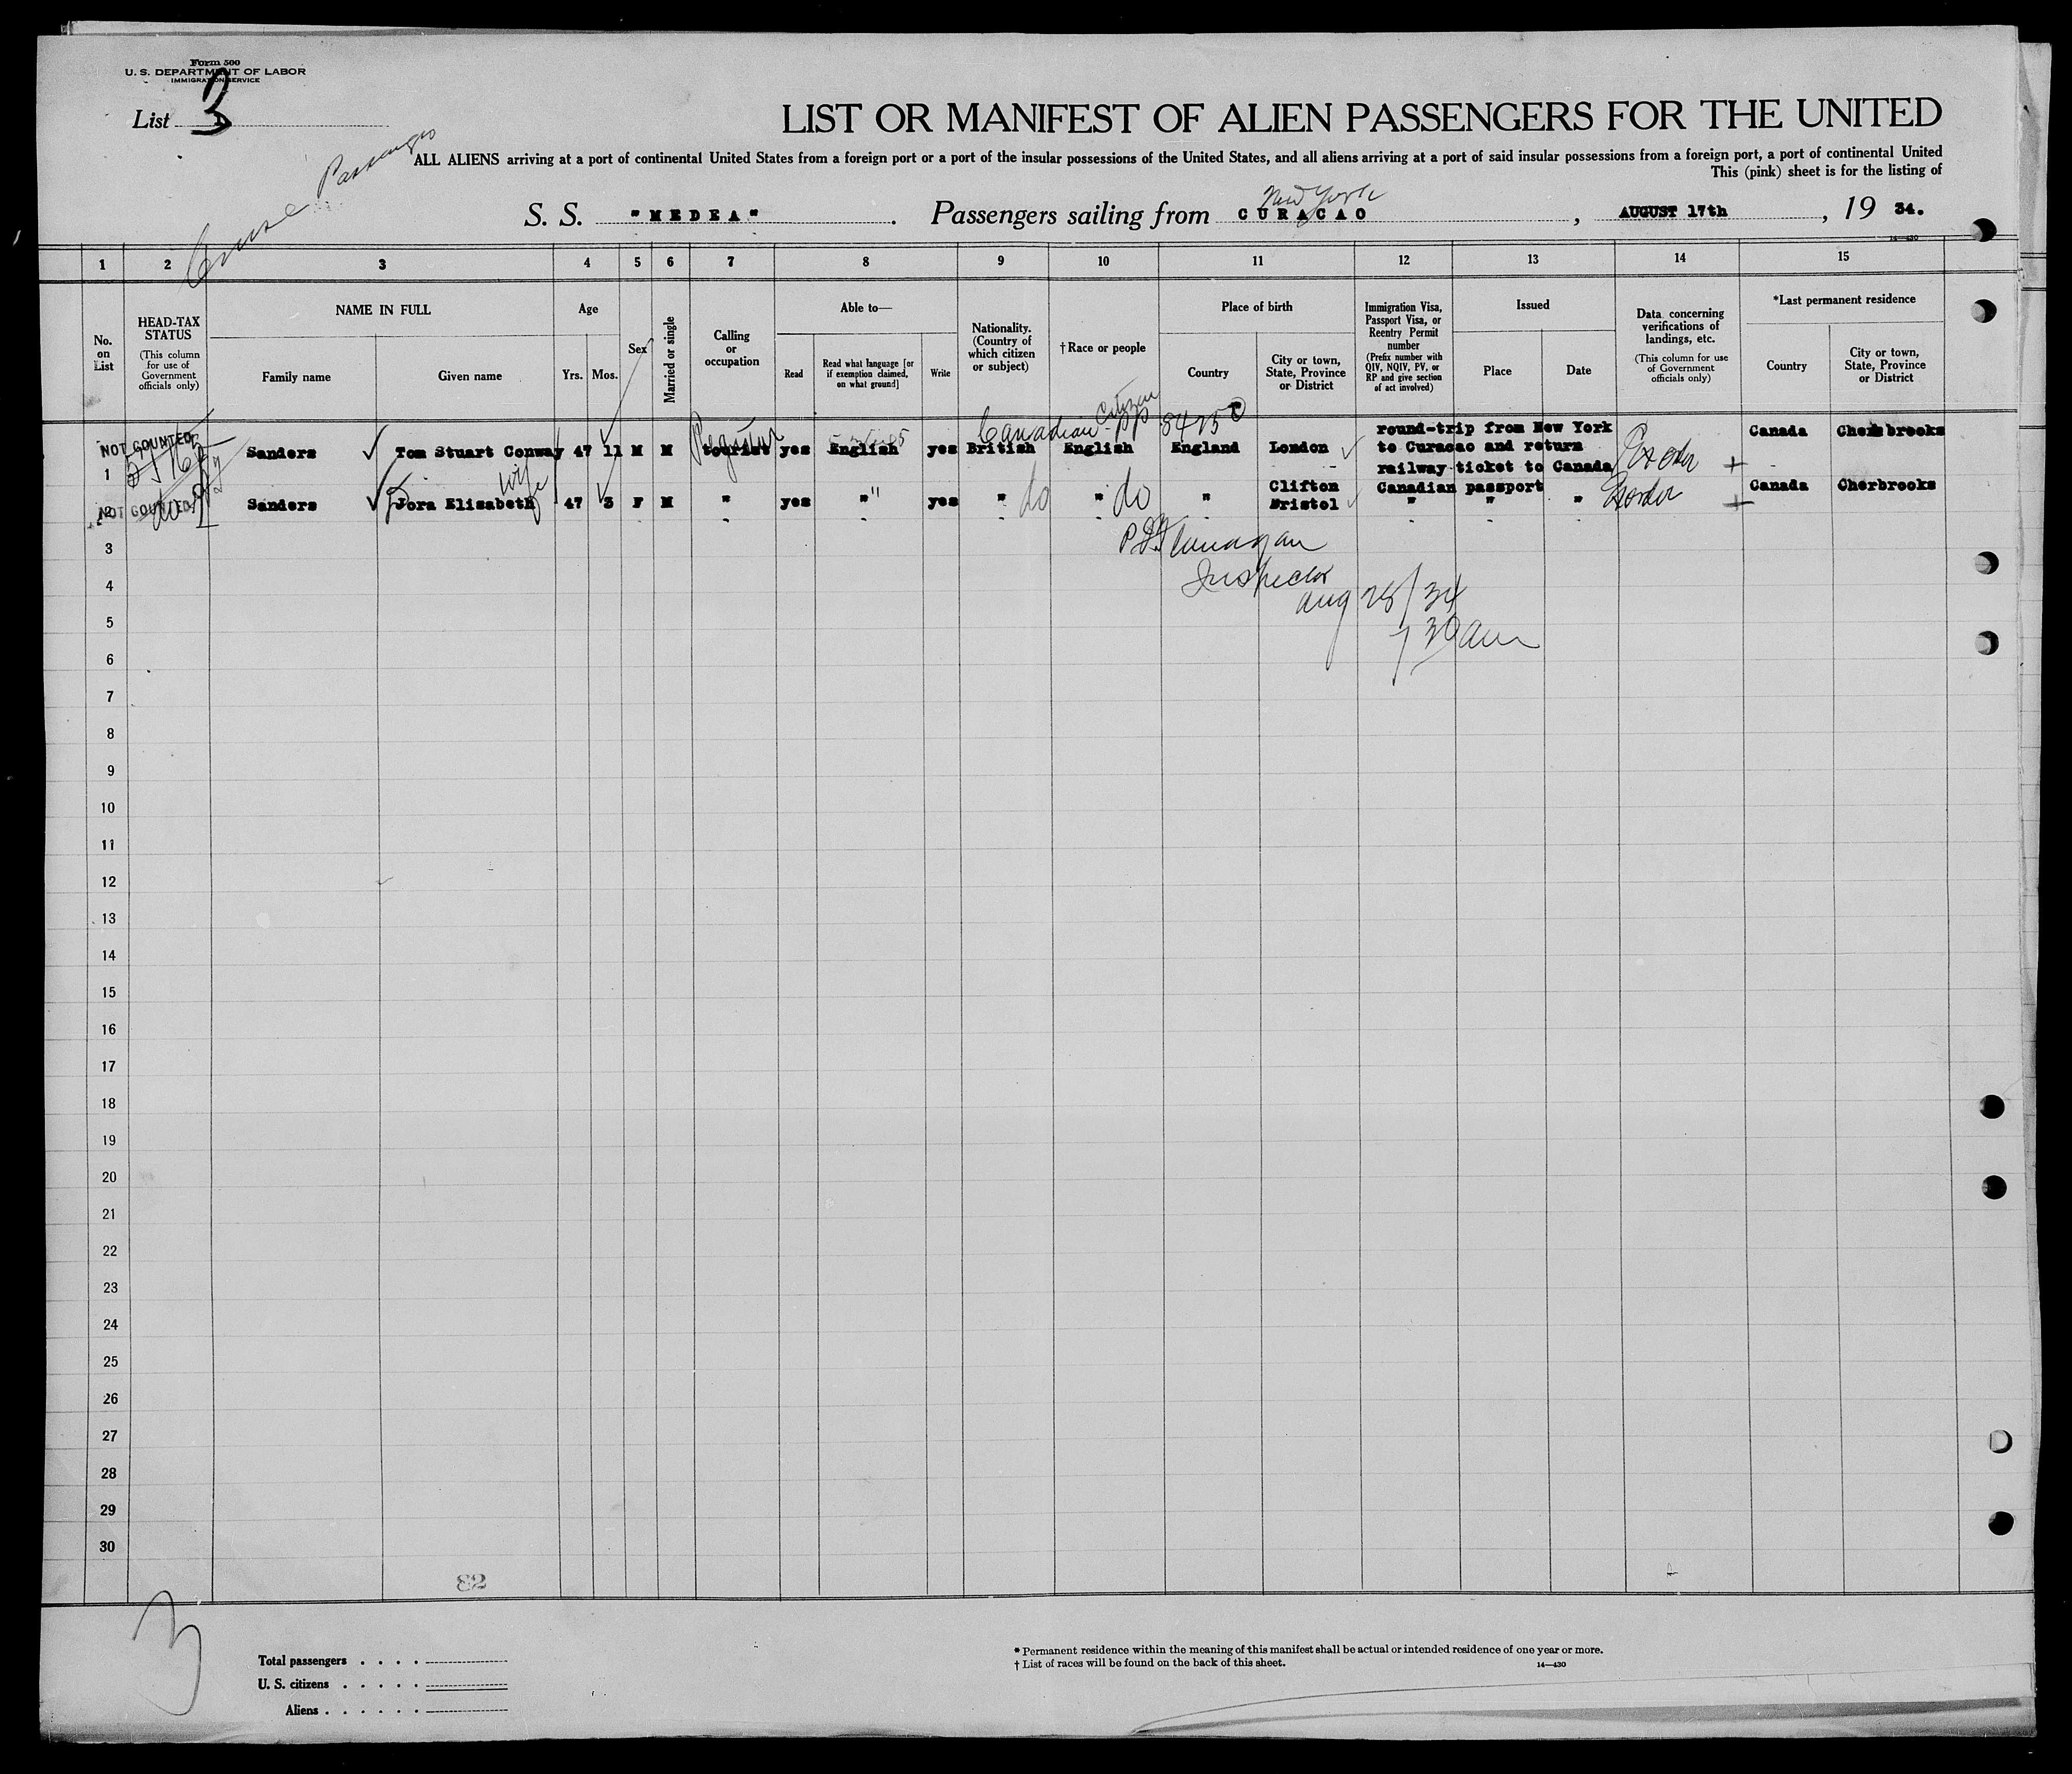 Form 500
U. S. DEPARTMENT OF LABOR
IMMIGRATION SERVICE
List 3
LIST OR MANIFEST OF ALIEN PASSENGERS FOR THE UNITED
Cruise Passengers
ALL ALIENS arriving at a port of continental United States from a foreign port or a port of the insular possessions of the United States, and all aliens arriving at a port of said insular possessions from a foreign port, a port of continental United
This (pink) sheet is for the listing of
New York
S. S. "MEDEA". Passengers sailing from CURACAO, AUGUST 17th, 19 34.
14—430
1 2 3 4 5 6 7 8 9 10 11 12 13 14 15
No. on List
HEAD-TAX STATUS
(This column for use of Government officials only)
NAME IN FULL
Family name
Given name
Age
Yrs. Mos.
Sex
Married or single
Calling or occupation
Able to—
Read
Read what language [or if exemption claimed, on what ground]
Write
Nationality. (Country of which citizen or subject)
†Race or people
Place of birth
Country
City or town, State, Province or District
Immigration Visa, Passport Visa, or Reentry Permit number
(Prefix number with QIV, NQIV, PV, or RP and give section of act involved)
Issued
Place
Date
Data concerning verifications of landings, etc.
(This column for use of Government officials only)
*Last permanent residence
Country
City or town, State, Province or District
Canadian Citizen PP 8425
NOT COUNTED
1 Sanders Tom Stuart Conway 47 11 M M tourist yes English yes British English England London round-trip from New York to Curacao and return railway ticket to Canada Canada Cherbrooks
wife
NOT COUNTED
2 Sanders Dora Elisabeth 47 3 F M " yes " yes " do " do " Clifton Bristol Canadian passport " " " Canada Cherbrooks
P.J. Flanagan
Inspector
Aug 28/34
7 30 am
3
4
5
6
7
8
9
10
11
12
13
14
15
16
17
18
19
20
21
22
23
24
25
26
27
28
29
30
32
3
Total passengers
U. S. citizens
Aliens
* Permanent residence within the meaning of this manifest shall be actual or intended residence of one year or more.
† List of races will be found on the back of this sheet.
14—430